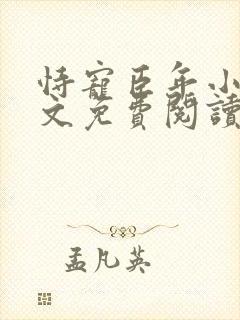 恃寵臣年小
文免費閱讀
孟凡英